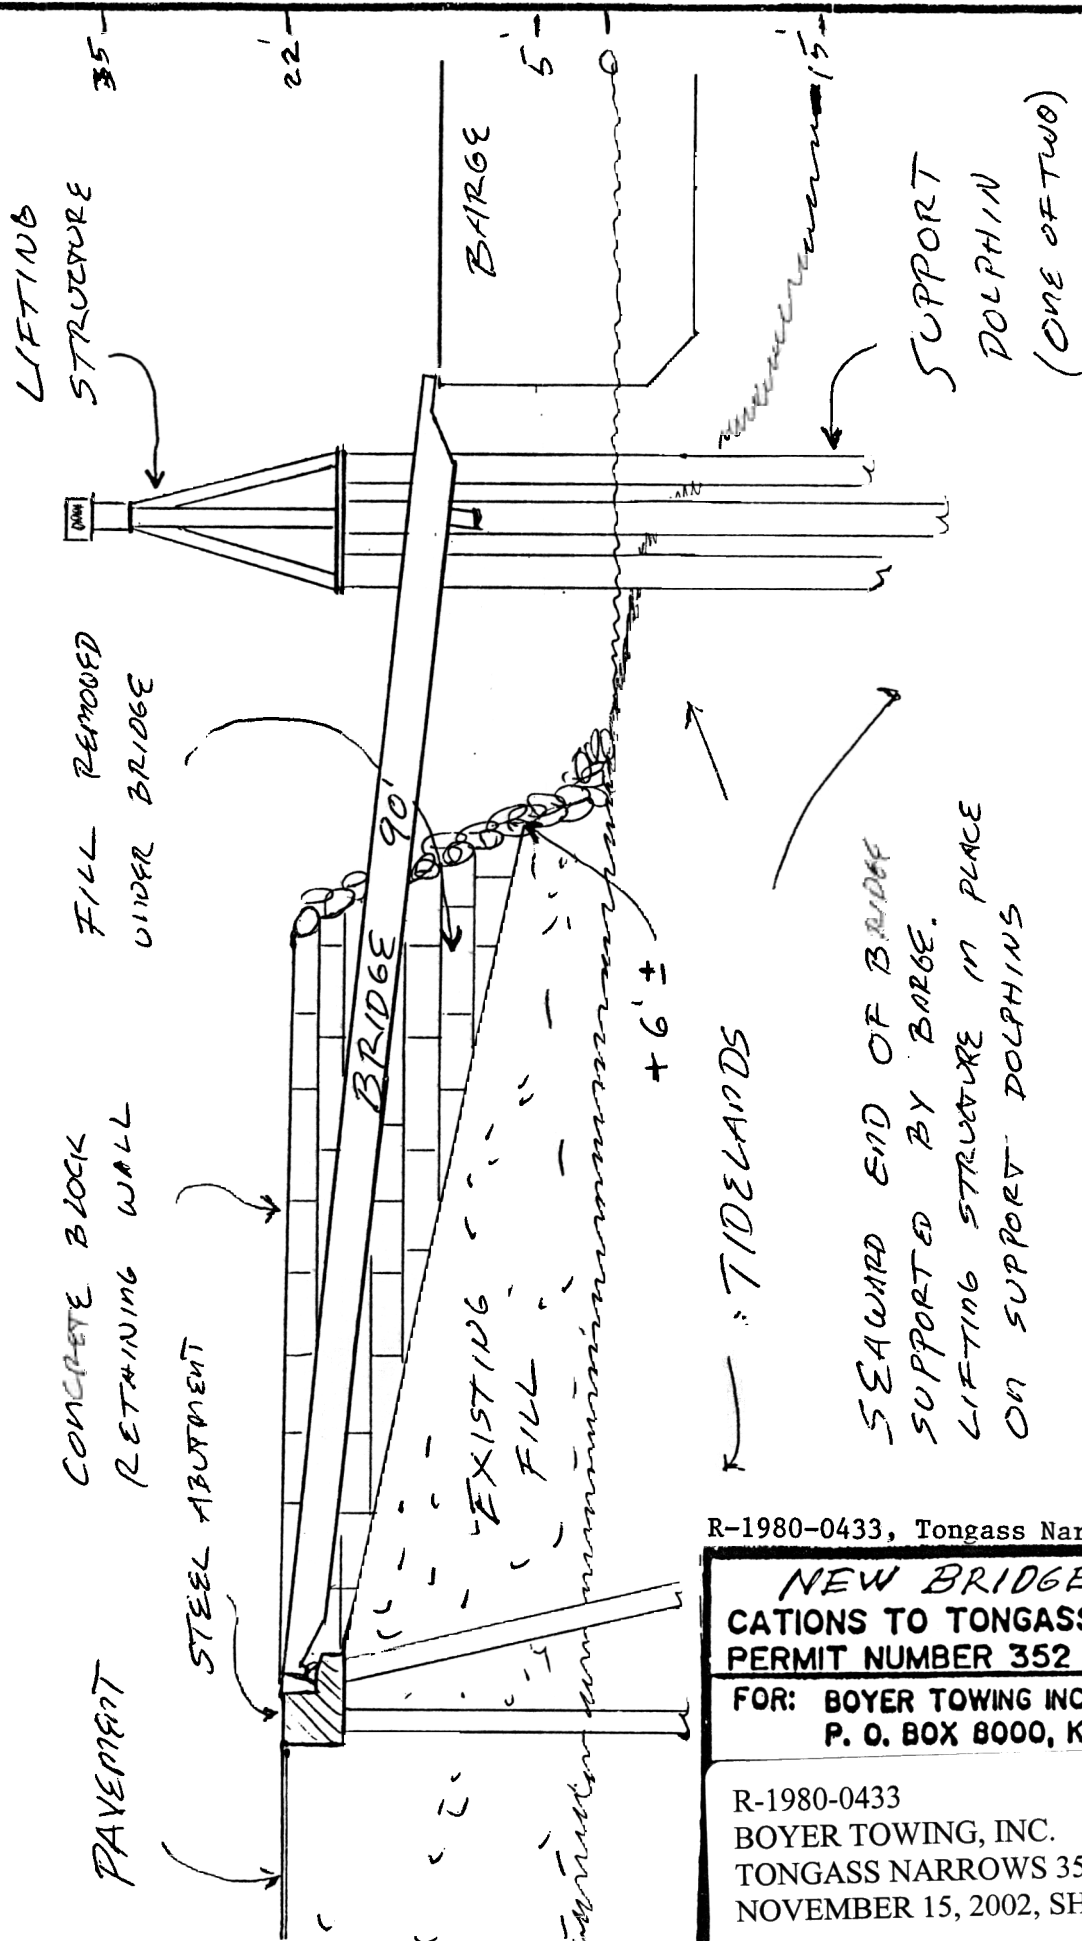 35'
22'
5'
0
-15'
LIFTING
STRUCTURE
BARGE
SUPPORT
DOLPHIN
(ONE OF TWO)
FILL REMOVED
UNDER BRIDGE
BRIDGE 90'
CONCRETE BLOCK
RETAINING WALL
STEEL ABUTMENT
PAVEMENT
EXISTING
FILL
+6' ±
TIDELANDS
SEAWARD END OF BRIDGE
SUPPORTED BY BARGE.
LIFTING STRUCTURE IN PLACE
ON SUPPORT DOLPHINS
R-1980-0433, Tongass Nar
NEW BRIDGE
CATIONS TO TONGASS
PERMIT NUMBER 352
FOR: BOYER TOWING INC
P. O. BOX 8000, K
R-1980-0433
BOYER TOWING, INC.
TONGASS NARROWS 35
NOVEMBER 15, 2002, SH